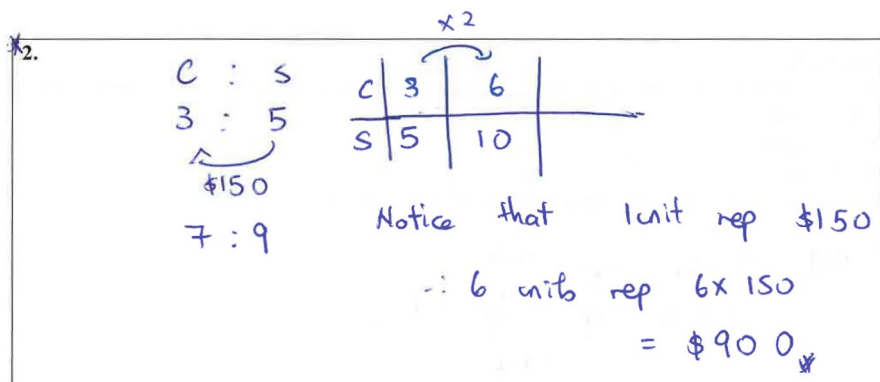 x 2
*2.
C : S
3 : 5
$150
7 : 9
C 3 6
S 5 10
Notice that 1 unit rep $150
∴ 6 units rep 6 x 150
= $900